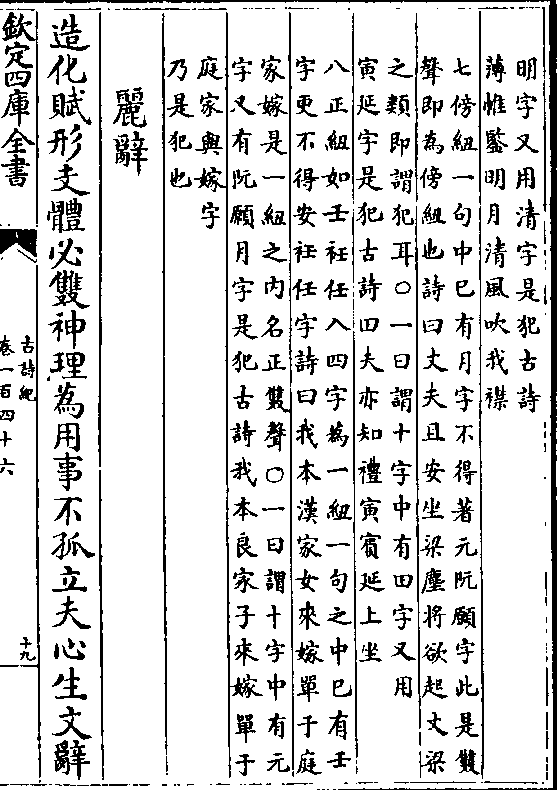 明字又用清字是犯古詩
薄帷鑒明月清風吹我襟
七傍紐一句中巳有月字不得著元阮願字此是雙
聲即為傍紐也詩曰丈夫且安坐梁塵將欲起丈梁
之類即謂犯耳○一曰謂十字中有田字又用
寅延字是犯古詩田夫亦知禮寅賔延上坐
八正紐如壬衽任入四字為一紐一句之中巳有壬
字更不得安衽任字詩曰我本漢家女來嫁單于庭
家嫁是一紐之内名正雙聲○一曰謂十字中有元
字又有阮願月字是犯古詩我本良家子來嫁單于
庭家與嫁字
乃是犯也
麗辭
造化賦形支體必雙神理為用事不孤立夫心生文辭
欽定四庫全書
古詩紀
卷一百四十六
十九